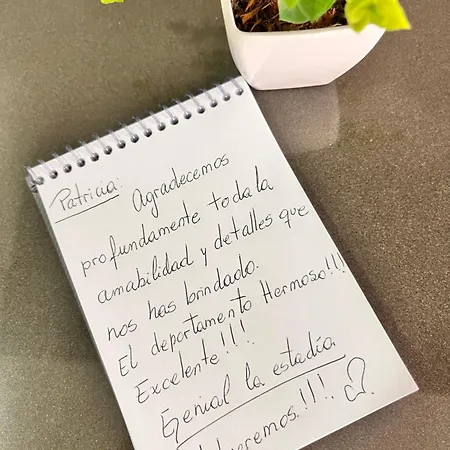 Patricia:
Agradecemos
profundamente toda la
amabilidad y detalles que
nos has brindado.
El departamento Hermoso!!!
Excelente!!!
Genial la estadía